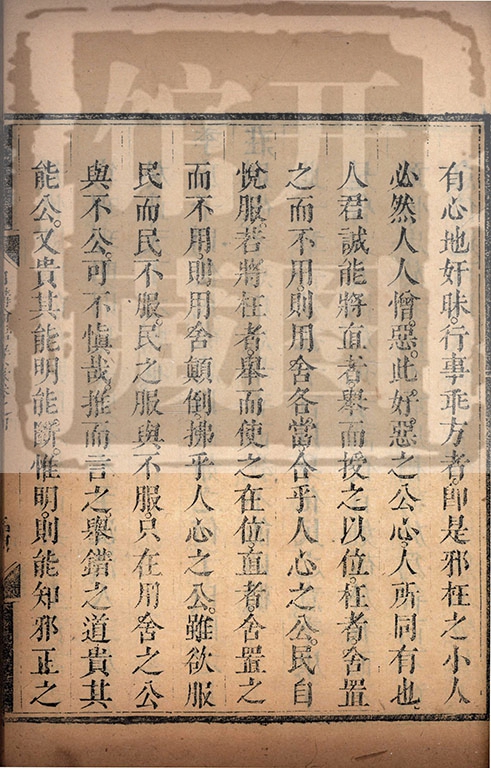 有心地奸昧行事乖方者。卽是邪枉之小人
必然人人憎惡。此好惡之公心。人所同有也。
人君誠能將直者舉而授之以位。枉者舍置
之而不用。則用舍各當合乎人心之公。民自
悅服。若將枉者舉而使之在位。直者舍置之
而不用。則用舍顛倒。拂乎人心之公。雖欲服
民而民不服。民之服與不服。只在用舍之公
與不公。可不愼哉。推而言之。舉錯之道。貴其
能公。又貴其能明能斷。惟明。則能知邪正之